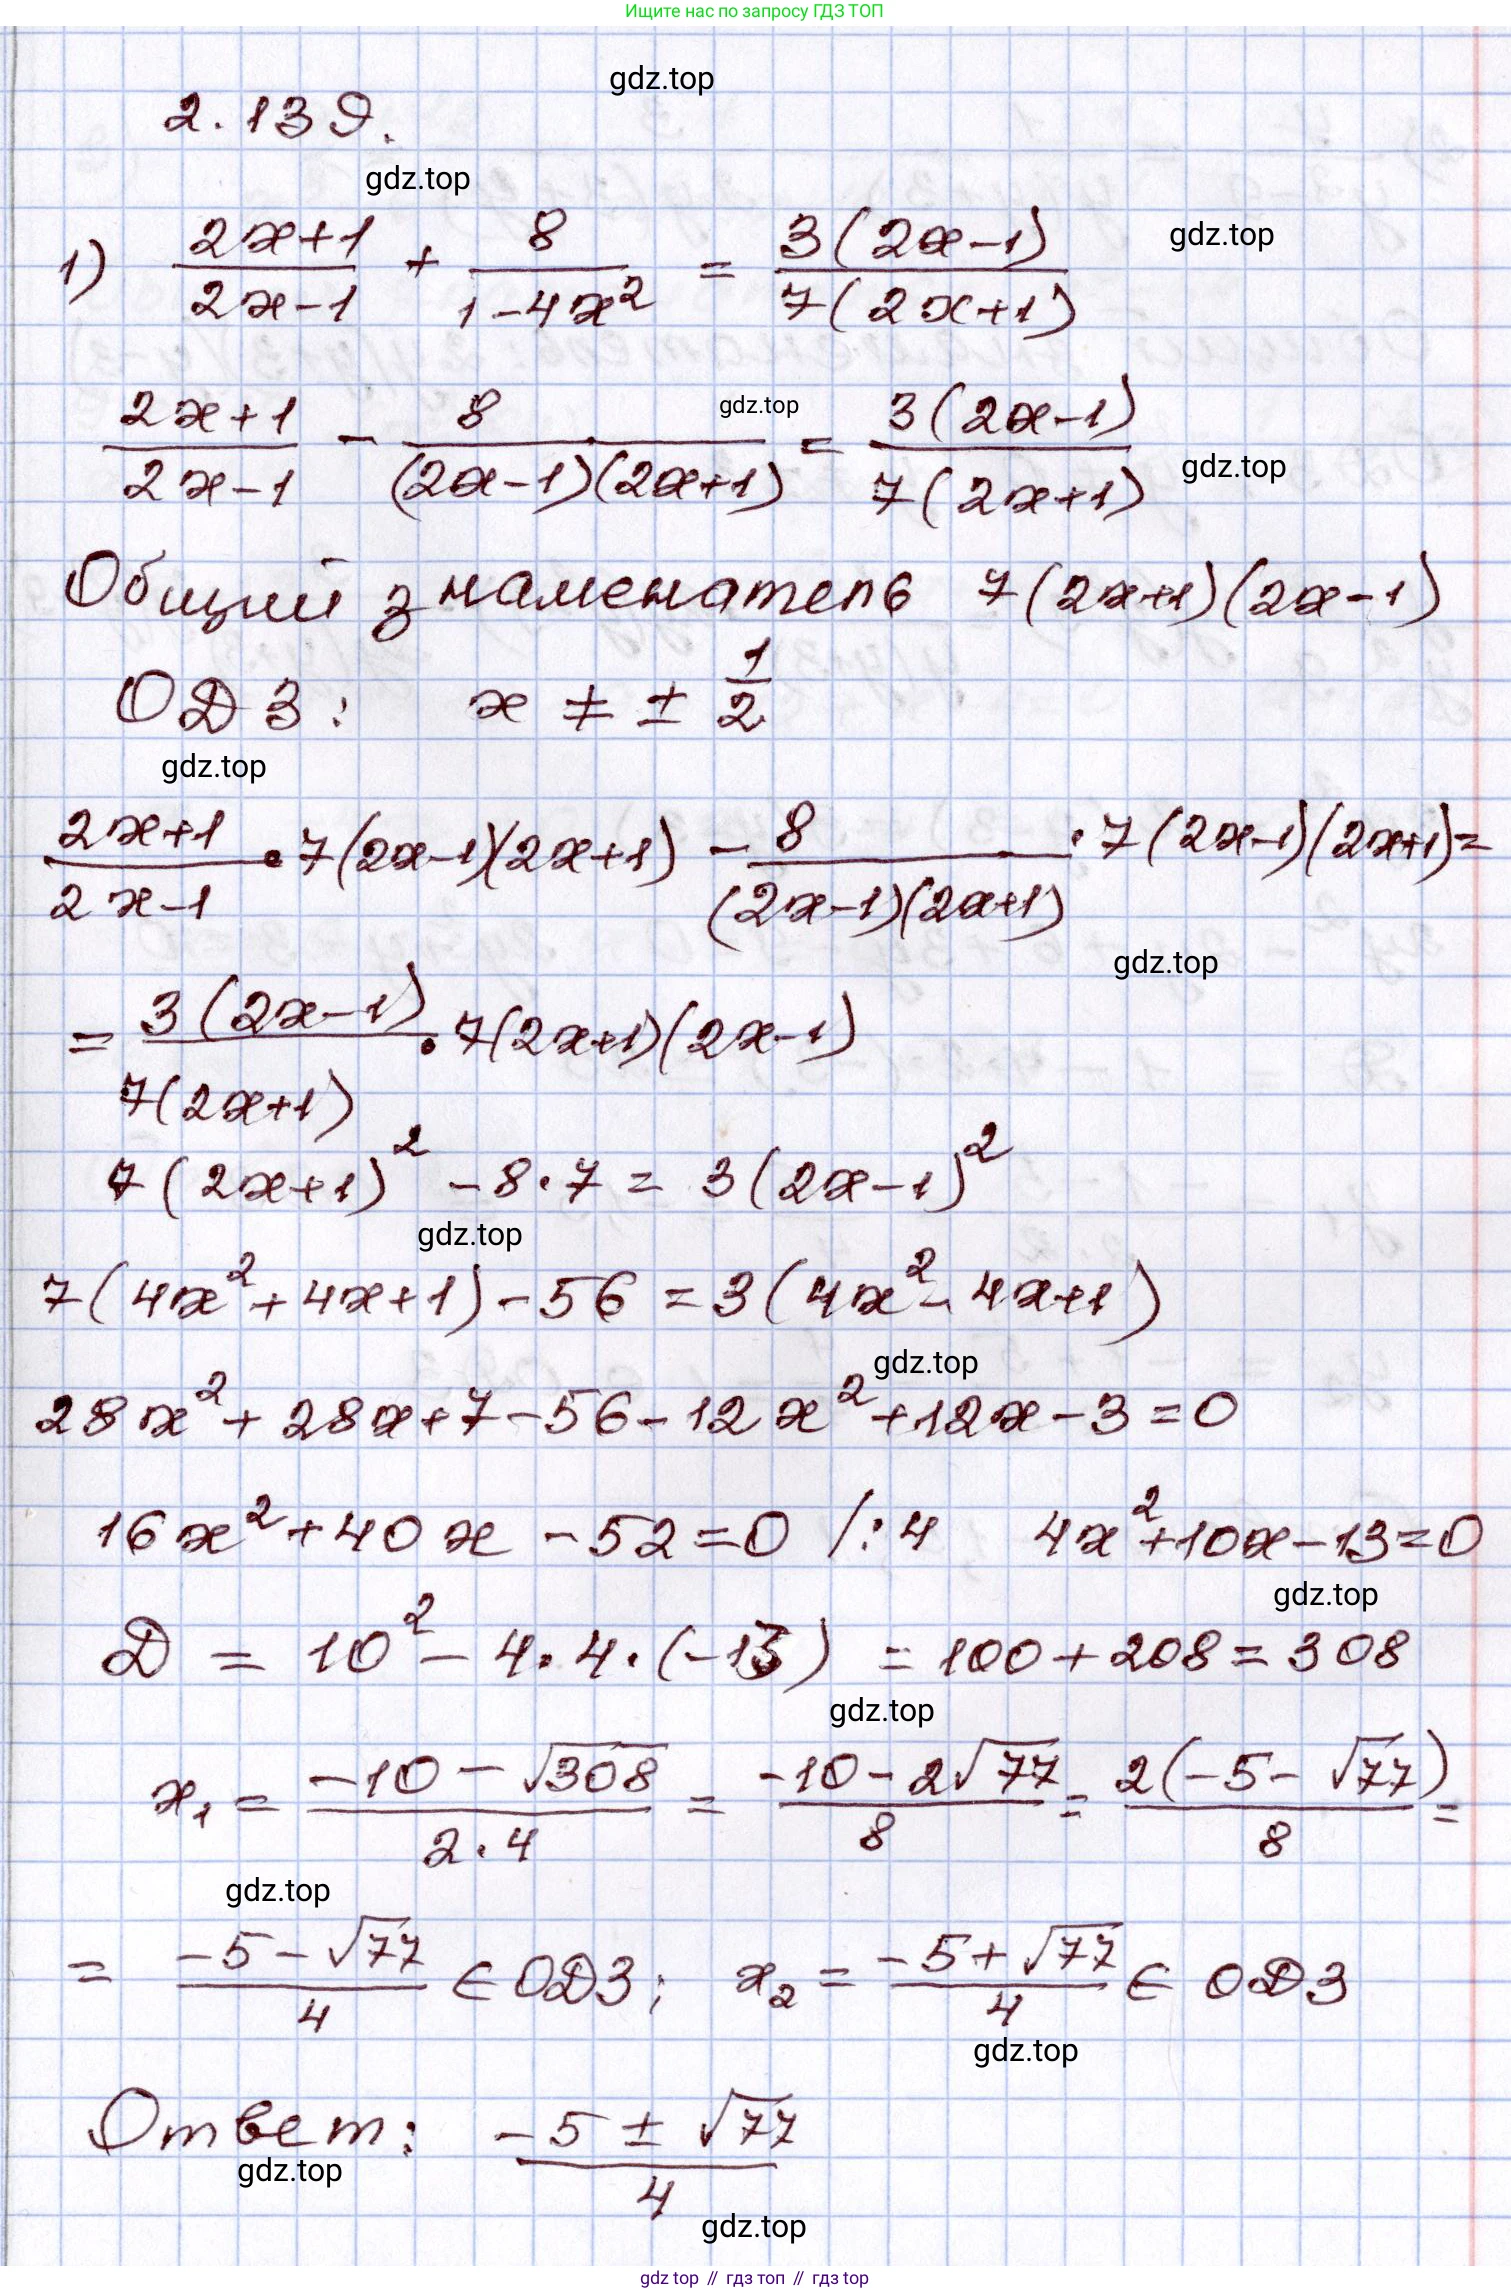 Ищите нас по запросу ГДЗ ТОП
gdz.top
2.139.
gdz.top
1) (2x+1)/(2x-1) + 8/(1-4x²) = 3(2x-1)/(7(2x+1))
gdz.top
(2x+1)/(2x-1) - 8/((2x-1)(2x+1)) = 3(2x-1)/(7(2x+1))
gdz.top
gdz.top
Общий знаменатель 7(2x+1)(2x-1)
ОДЗ: x ≠ ± 1/2
gdz.top
(2x+1)/(2x-1) • 7(2x-1)(2x+1) - 8/((2x-1)(2x+1)) · 7(2x-1)(2x+1) =
gdz.top
= 3(2x-1)/(7(2x+1)) • 7(2x+1)(2x-1)
7(2x+1)² - 8·7 = 3(2x-1)²
gdz.top
7(4x²+4x+1)-56 = 3(4x²-4x+1)
gdz.top
28x²+28x+7-56-12x²+12x-3=0
16x²+40x-52=0 /:4 4x²+10x-13=0
gdz.top
D = 10² - 4·4·(-13) = 100+208=308
gdz.top
x₁ = (-10-√308)/(2·4) = (-10-2√77)/8 = 2(-5-√77)/8 =
gdz.top
= (-5-√77)/4 ∈ ОДЗ; x₂ = (-5+√77)/4 ∈ ОДЗ
gdz.top
Ответ: (-5±√77)/4
gdz.top
gdz.top
gdz.top // гдз топ // гдз.top